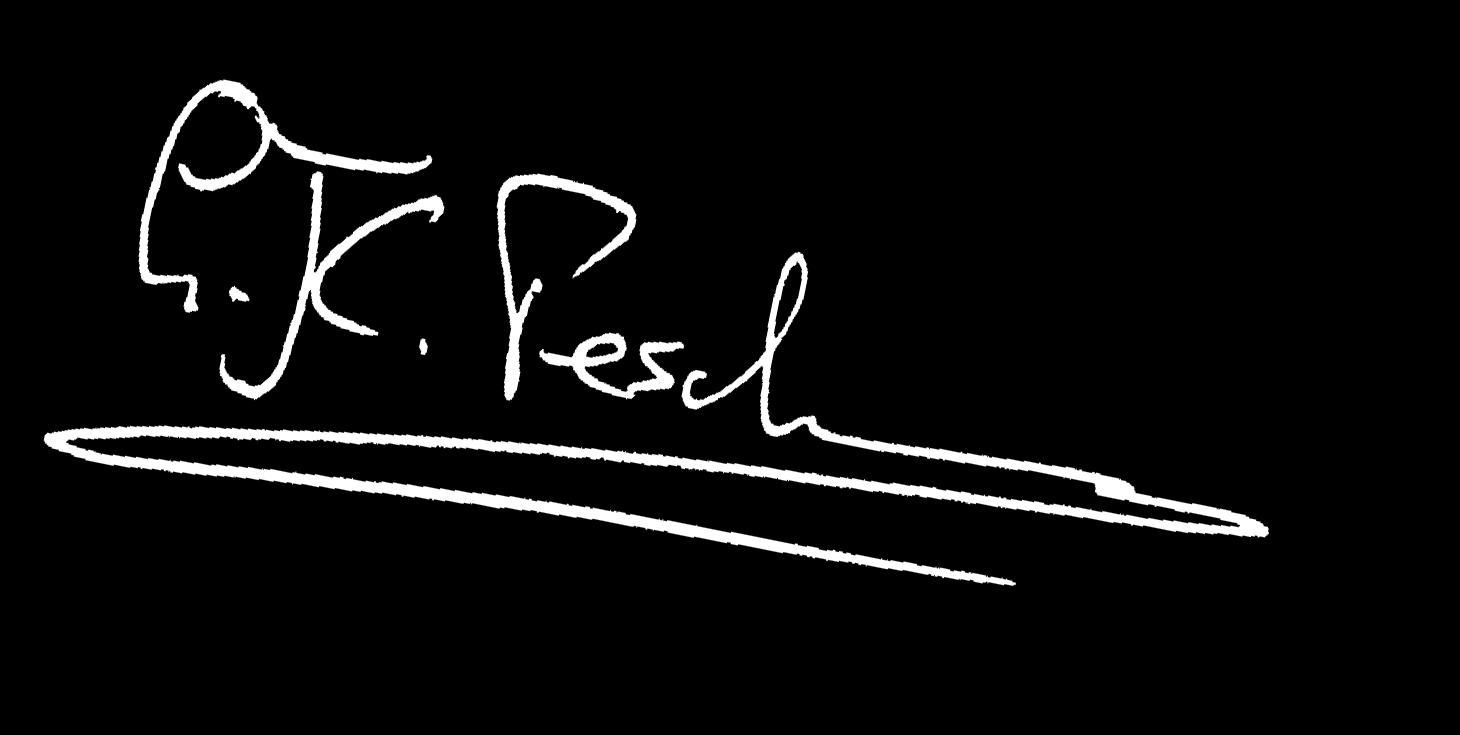 K. Pesch